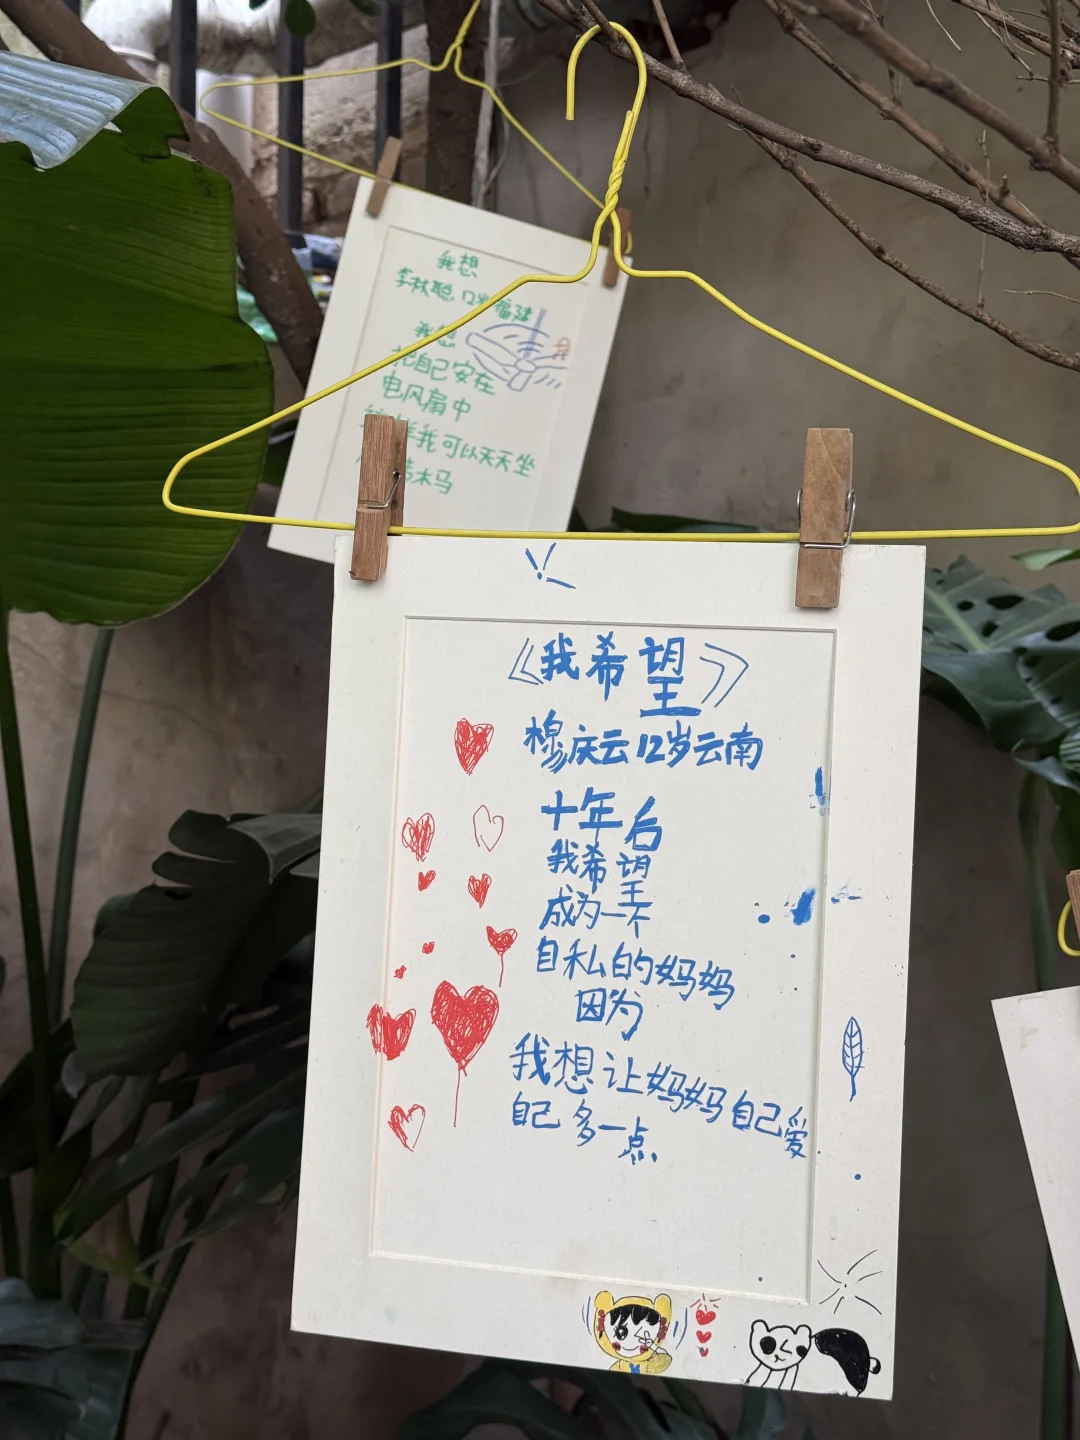 我想
李秋聪 12岁 福建
我想
把自己安在
电风扇中
这样我可以天天坐
木马
《我希望》
穆庆云12岁云南
十年后
我希望
成为一个
自私的妈妈
因为
我想让妈妈自己爱
自己多一点